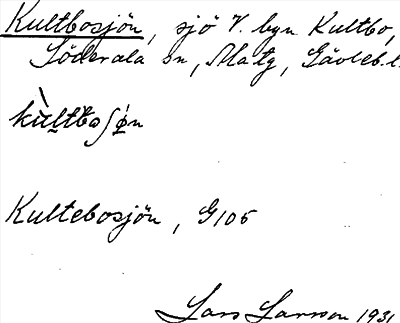 Kultbosjön, sjö V. byn Kultbo,
Söderala sn, Matg, Gävleb.l.
kùltboʃǿn
Kultebosjön, G105
Lars Larsson 1931